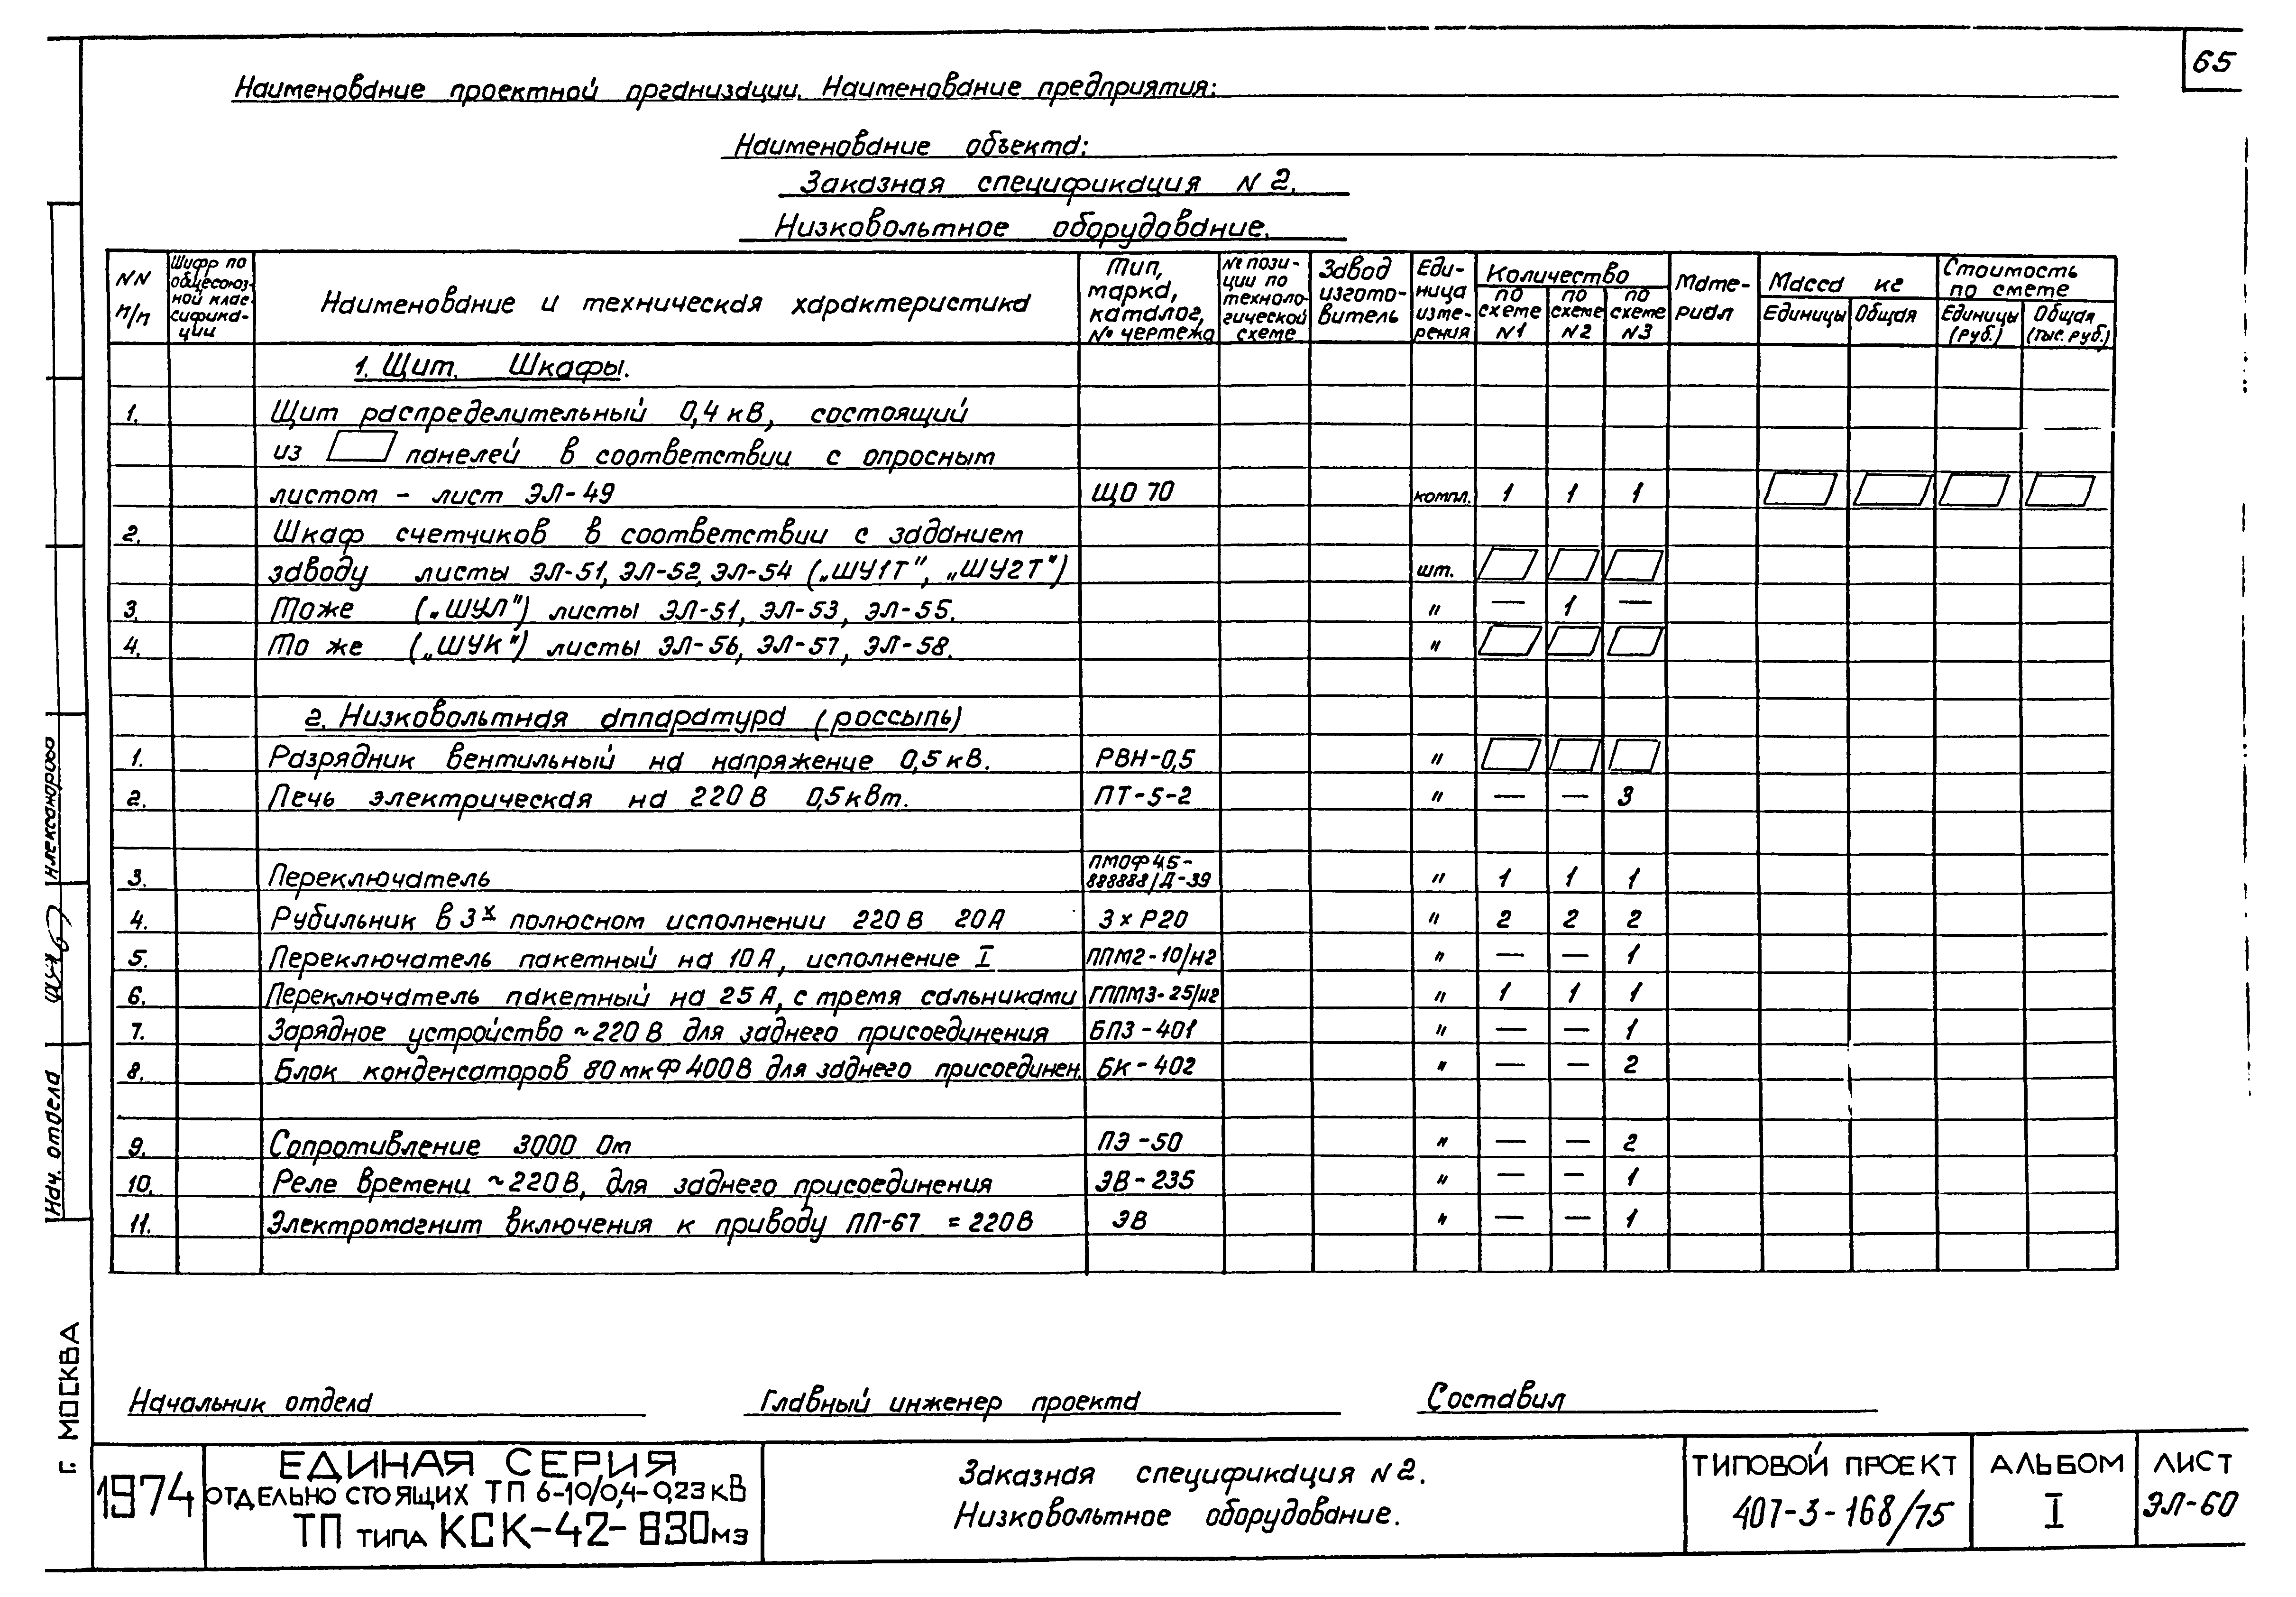 65
Наименование проектной организации. Наименование предприятия:
Наименование объекта:
Заказная спецификация N 2.
Низковольтное оборудование.
NN п/п | Шифр по общесоюз- ной клас- сифика- ции | Наименование и техническая характеристика | Тип, марка, каталог, № чертежа | № пози- ции по техноло- гической схеме | Завод изгото- витель | Еди- ница изме- рения | Количество | Мате- риал | Масса кг | Стоимость по смете
по схеме N1 | по схеме N2 | по схеме N3 | Единицы | Общая | Единицы (руб.) | Общая (тыс. руб.)
1. Щит. Шкафы.
1. Щит распределительный 0,4 кВ, состоящий
из панелей в соответствии с опросным
листом – лист ЭЛ-49 ЩО 70 компл. 1 1 1
2. Шкаф счетчиков в соответствии с заданием
заводу листы ЭЛ-51, ЭЛ-52, ЭЛ-54 („ШУ1Т", „ШУ2Т") шт.
3. Тоже („ШУЛ") листы ЭЛ-51, ЭЛ-53, ЭЛ-55. " — 1 —
4. То же („ШУК") листы ЭЛ-56, ЭЛ-57, ЭЛ-58. "
2. Низковольтная аппаратура (россыпь)
1. Разрядник вентильный на напряжение 0,5 кВ. РВН-0,5 "
2. Печь электрическая на 220 В 0,5 кВт. ПТ-5-2 " — — 3
3. Переключатель ПМОФ45-888888/Д-39 " 1 1 1
4. Рубильник в 3х полюсном исполнении 220 В 20 А 3 х Р20 " 2 2 2
5. Переключатель пакетный на 10 А, исполнение I ППМ2-10/н2 " — — 1
6. Переключатель пакетный на 25 А, с тремя сальниками ГППМ3-25/н2 " 1 1 1
7. Зарядное устройство ~ 220 В для заднего присоединения БПЗ-401 " — — 1
8. Блок конденсаторов 80 мкФ 400 В для заднего присоединен. БК-402 " — — 2
9. Сопротивление 3000 Ом ПЭ-50 " — — 2
10. Реле времени ~ 220 В, для заднего присоединения ЭВ-235 " — — 1
11. Электромагнит включения к приводу ПП-67 = 220 В ЭВ " — — 1
Начальник отдела Главный инженер проекта Составил
г. МОСКВА
Нач. отдела
1974
ЕДИНАЯ СЕРИЯ
ОТДЕЛЬНО СТОЯЩИХ ТП 6-10/0,4-0,23 кВ
ТП ТИПА КСК-42-830 мз
Заказная спецификация N 2.
Низковольтное оборудование.
ТИПОВОЙ ПРОЕКТ
407-3-168/75
АЛЬБОМ
I
ЛИСТ
ЭЛ-60